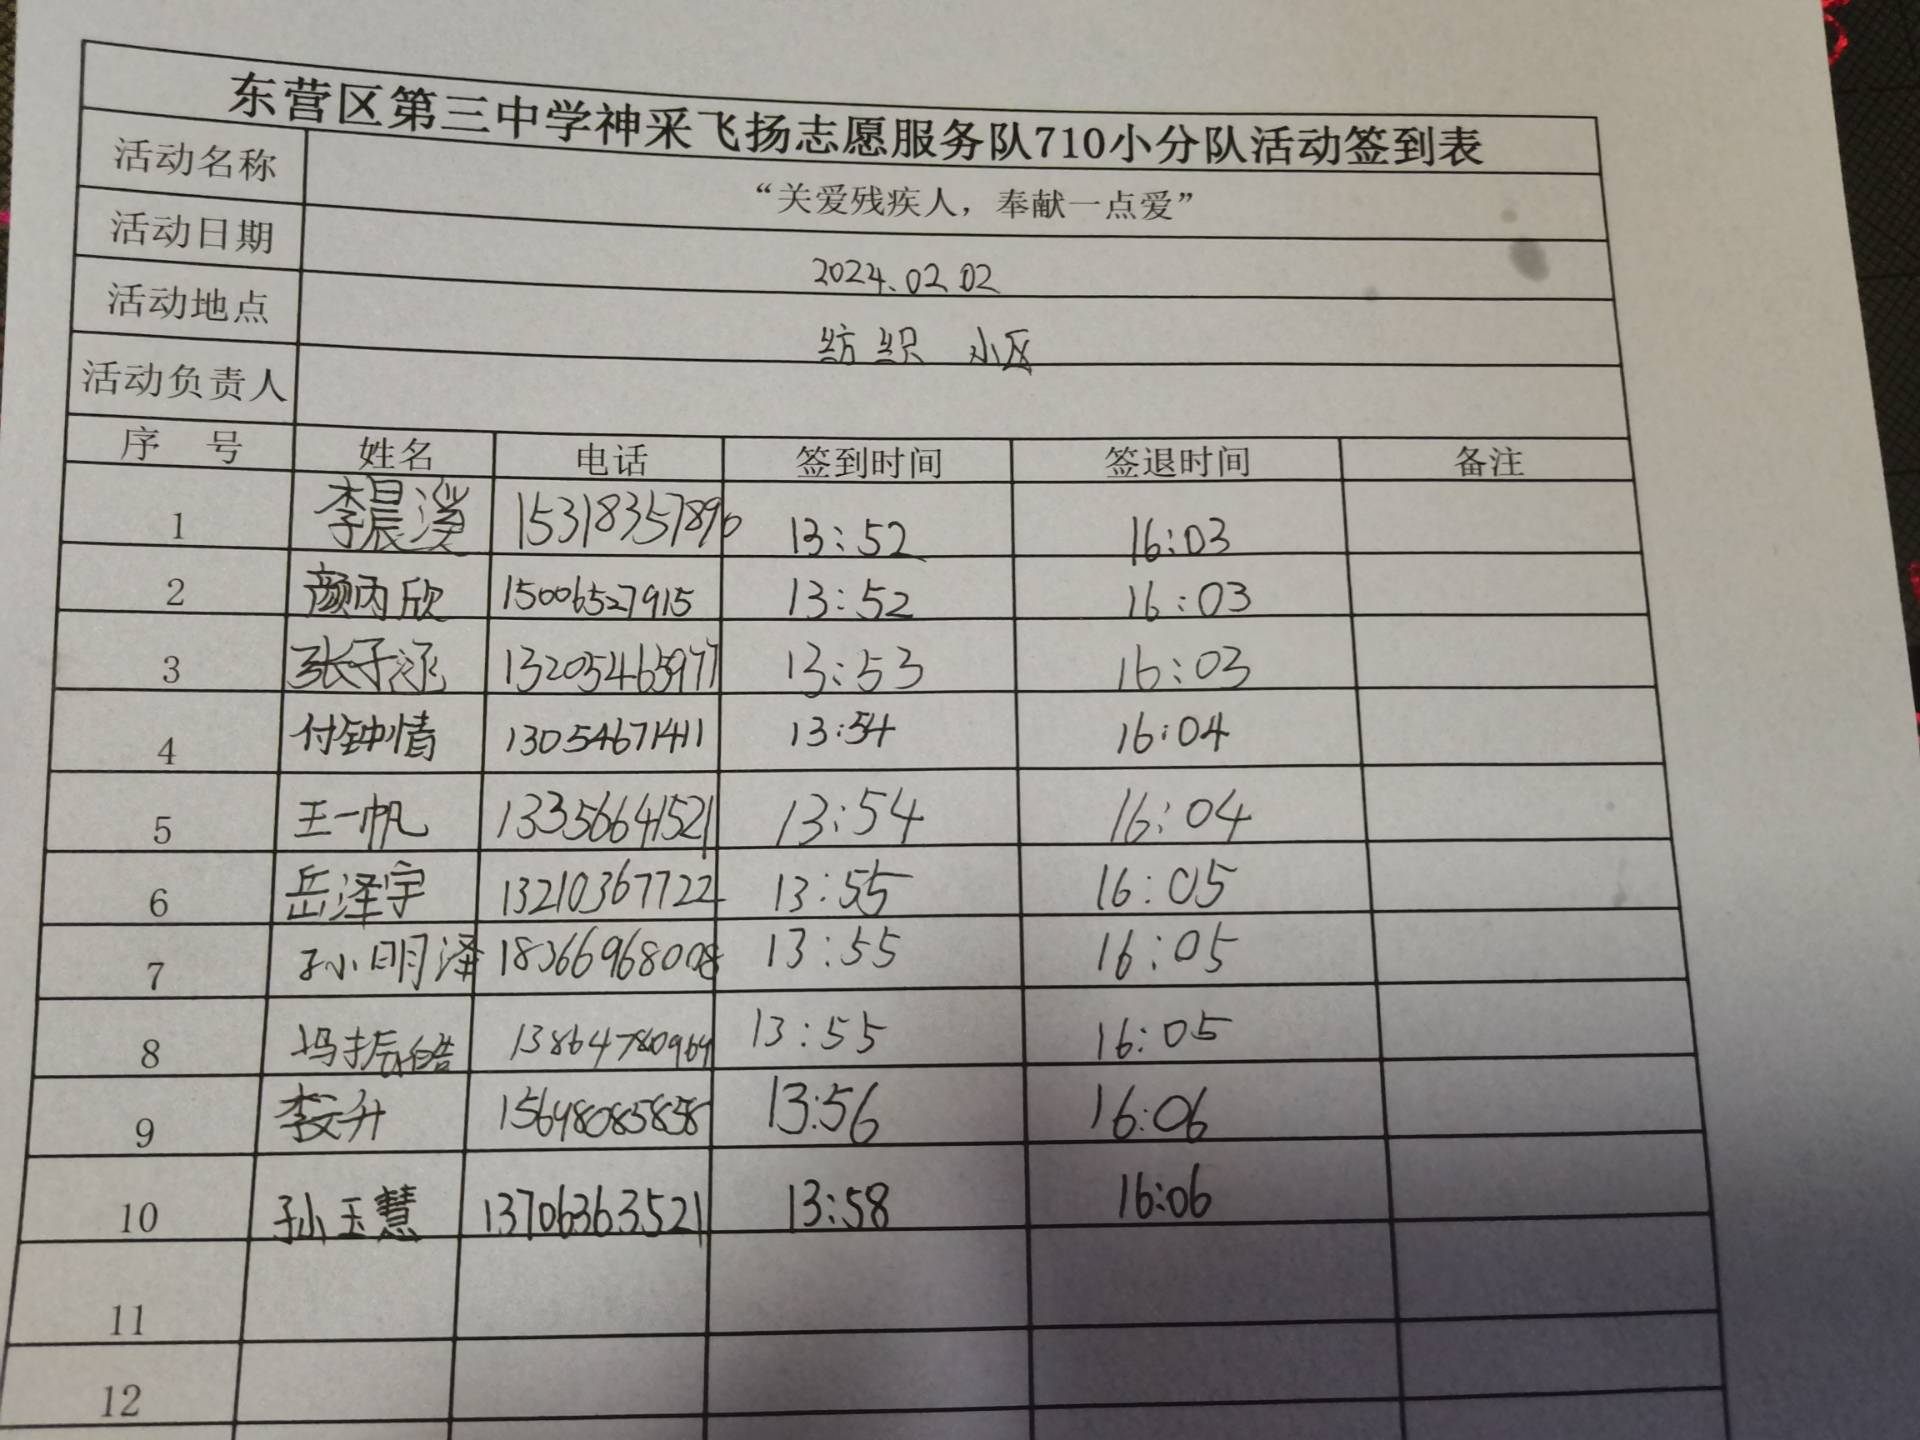 东营区第三中学神采飞扬志愿服务队710小分队活动签到表
活动名称 “关爱残疾人，奉献一点爱”
活动日期 2024.02.02
活动地点 纺织 小区
活动负责人
序 号 姓名 电话 签到时间 签退时间 备注
1 李晨 15318357896 13:52 16:03
2 颜丙欣 15006527915 13:52 16:03
3 张子涵 13205465977 13:53 16:03
4 付钟情 13054671411 13:54 16:04
5 王一帆 13356641521 13:54 16:04
6 岳泽宇 13210367722 13:55 16:05
7 孙明泽 18366968008 13:55 16:05
8 冯振皓 13:55 16:05
9 李文升 15648085858 13:56 16:06
10 孙玉慧 13706363521 13:58 16:06
11
12